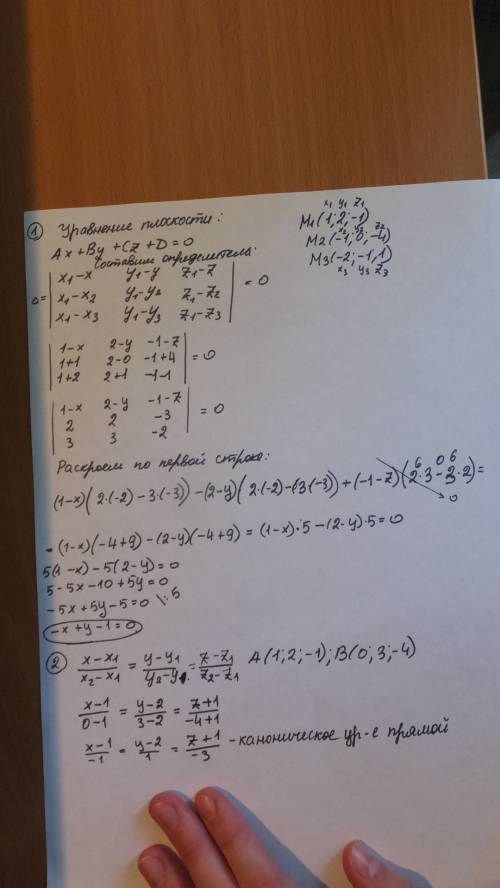 ① Уравнение плоскости:
Ax + By + CZ + D = 0
Составим определитель:
0 = | x₁-x y₁-y z₁-z |
| x₁-x₂ y₁-y₂ z₁-z₂ | = 0
| x₁-x₃ y₁-y₃ z₁-z₃ |
x₁ y₁ z₁
M₁(1; 2; -1)
x₂ y₂ z₂
M2(-1, 0; -4)
M3(-2; -1, 1)
x₃ y₃ z₃
| 1-x 2-y -1-z |
| 1+1 2-0 -1+4 | = 0
| 1+2 2+1 -1-1 |
| 1-x 2-y -1-z |
| 2 2 -3 | = 0
| 3 3 -2 |
Раскроем по первой строке:
6 0 6
(1-x)(2·(-2) - 3·(-3)) - (2-y)(2·(-2) - (3·(-3)) + (-1-z)(2·3 - 3·2) =
0
= (1-x)(-4+9) - (2-y)(-4+9) = (1-x)·5 - (2-y)·5 = 0
5(1-x) - 5(2-y) = 0
5 - 5x - 10 + 5y = 0
-5x + 5y - 5 = 0 \: 5
-x + y - 1 = 0
② (x-x₁)/(x₂-x₁) = (y-y₁)/(y₂-y₁) = (z-z₁)/(z₂-z₁) A(1; 2; -1); B(0; 3; -4)
(x-1)/(0-1) = (y-2)/(3-2) = (z+1)/(-4+1)
(x-1)/(-1) = (y-2)/1 = (z+1)/(-3) - каноническое ур-е прямой